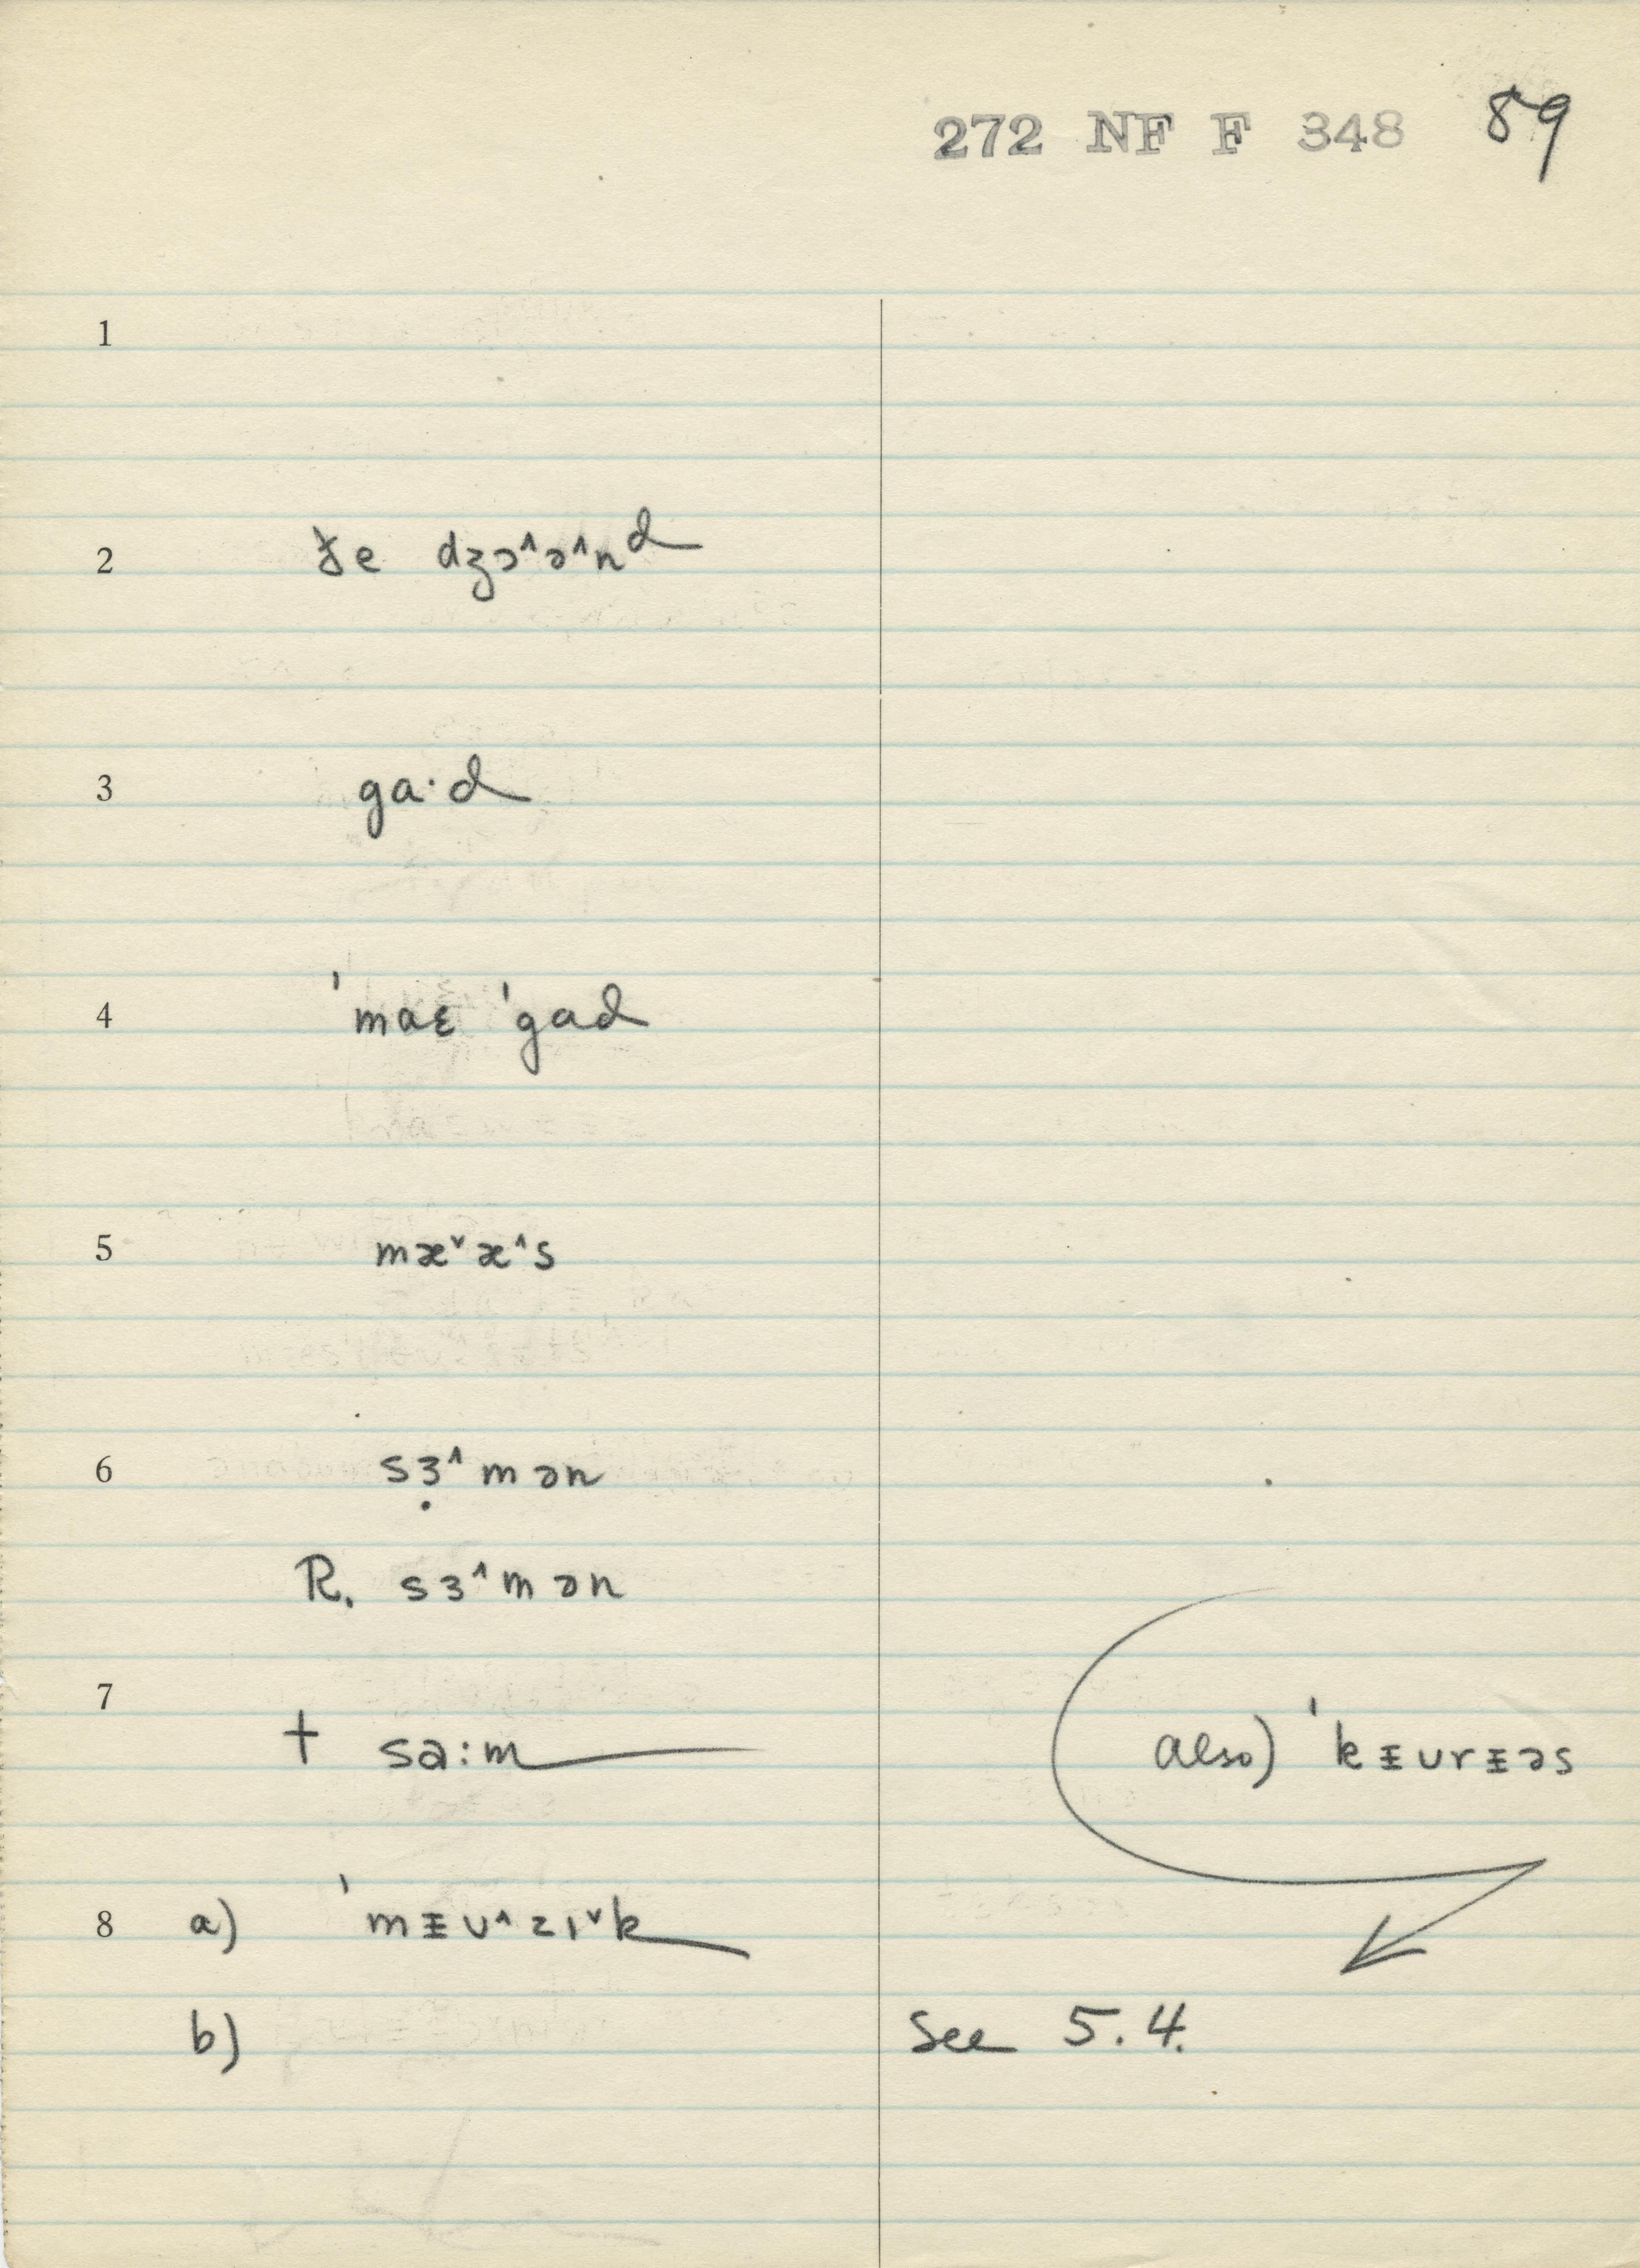 272 NF F 348 89
1
2 ðe dʒɔ˄ə˄nᵈ
3 ga·d
4 ˈmaɛ ˈgad
5 mæ˅æ˄s
6 sɜ̣˄mən
R. sɜ˄mən
7
† sa:m
also) ˈkᵻurᵻəs
8 a) ˈmᵻu˄zɪ˅k
b) See 5.4.